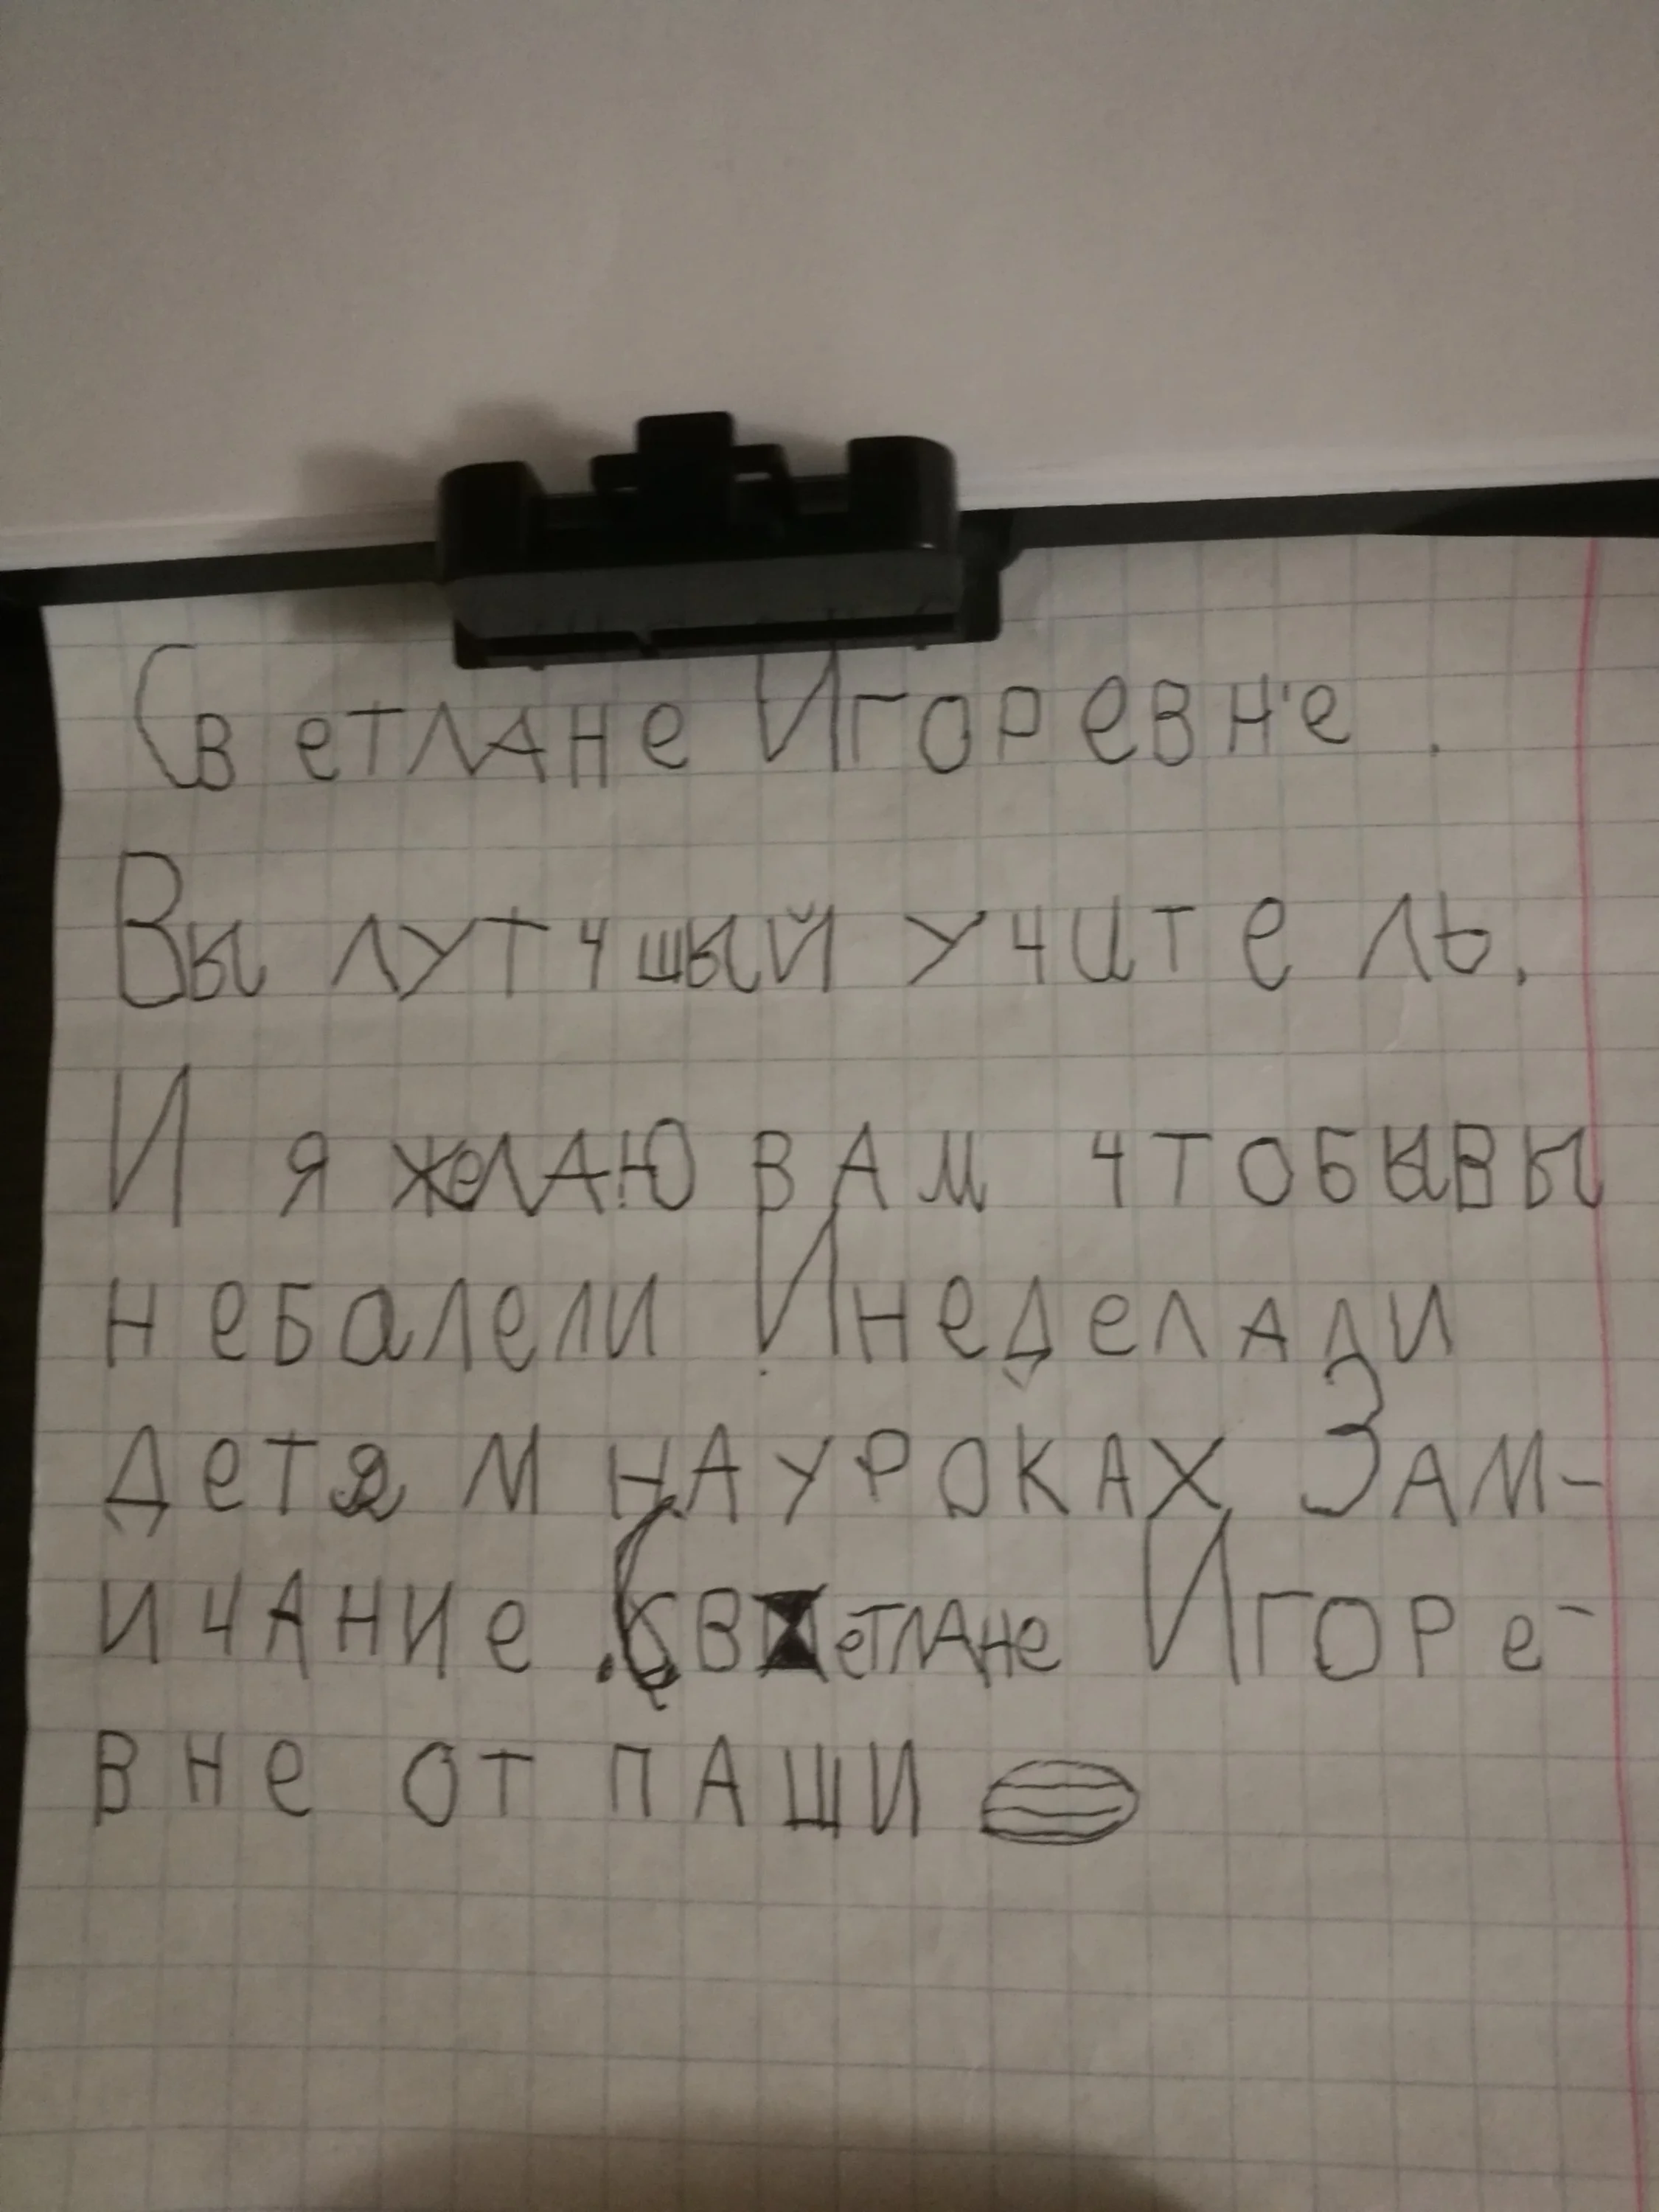 Светлане Игоревне.
Вы лутчшый учитель.
И я желаю вам чтобывы
небалели Инеделали
детям науроках Зам-
ичание. Светлане Игоре-
вне от паши